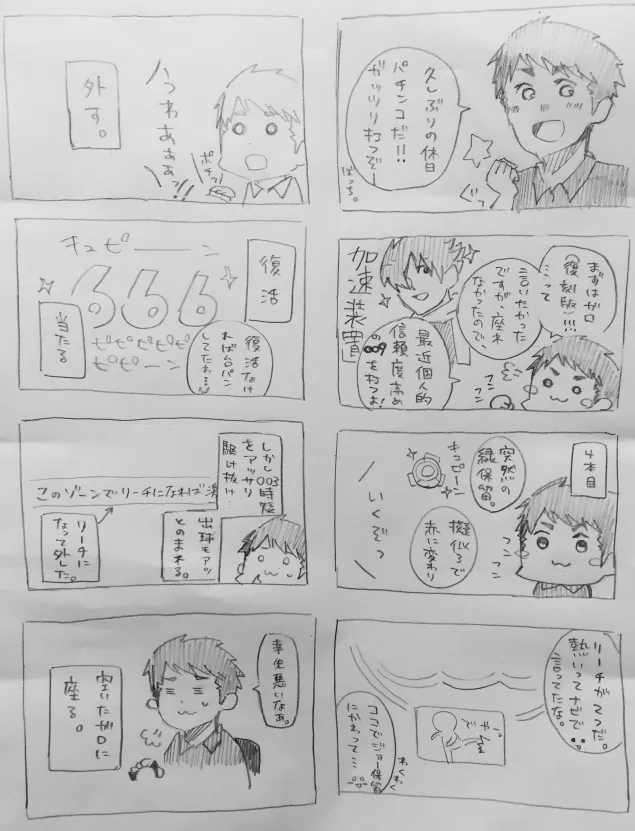 久しぶりの休日
パチンコだ!!
ガッツリ打つぞー
ぐっ
ぱっち。
まずはガロ
(復刻版)!!!
…って
言いたかった
ですが、座れ
なかったので、
加速装置
最近個人的
信頼度高め
の009を打つよ!
フン
フン
4本目
突然の
緑保留。
キュピーン
擬似3で
赤に変わり
いくぞっ
フン
フン
リーチが2つだ。
熱いってナビで
言ってたな。
でやっ
わくわく
ココでジョー保留
にかわって…
うわあああぁっ!
ポチッ
外す。
キュピーーン
復活
666
ピピピピピ
ピピーン
当たる
復活なけ
れば台パン
してたわ…
しかし003時短
をアッサリ
駆け抜け…
このゾーンでリーチになれば激
リーチに
なって外した。
出球もアッ
とのまれる。
幸先悪いなぁ。
空いたガロに
座る。